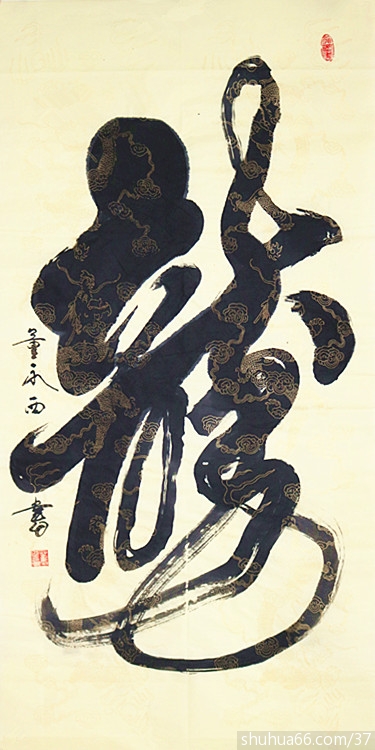 龙
董永西
书
shuhua66.com/37